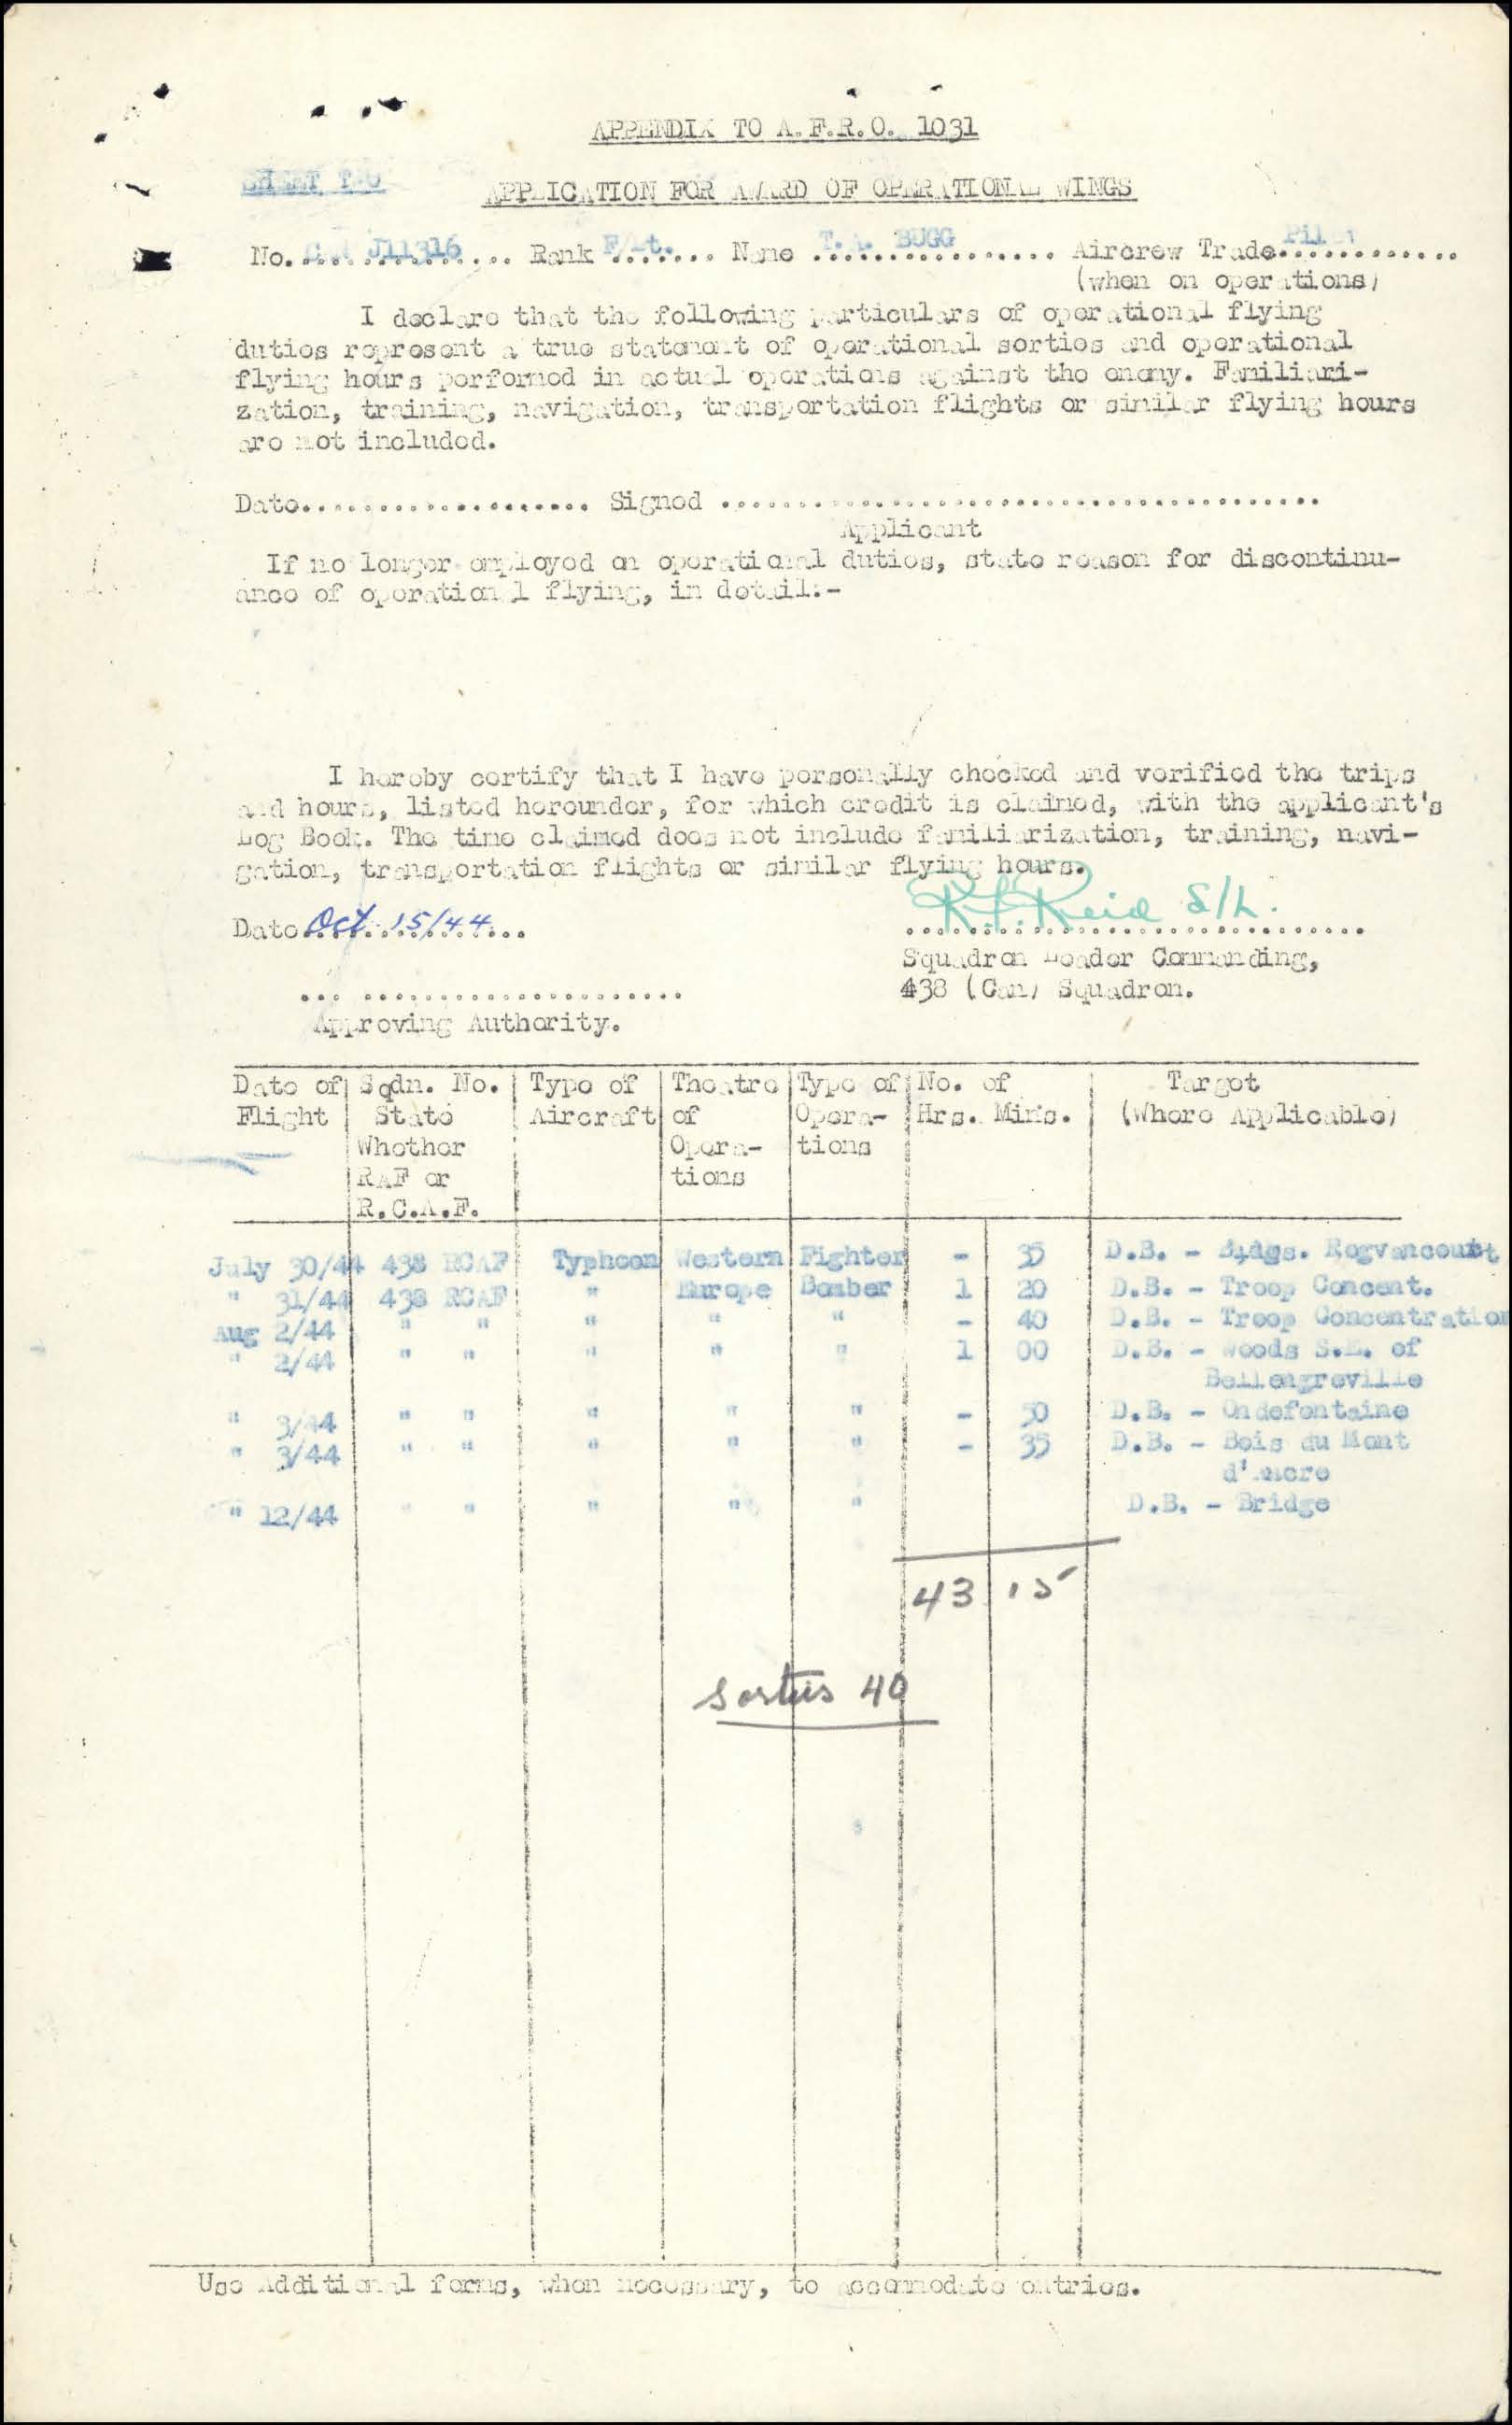 APPENDIX TO A.F.R.O. 1031
SHEET TWO
APPLICATION FOR AWARD OF OPERATIONAL WINGS
No. J11316 Rank F/Lt. Name T.A. BUGG Aircrew Trade Pilot
(when on operations)
I declare that the following particulars of operational flying
duties represent a true statement of operational sorties and operational
flying hours performed in actual operations against the enemy. Familiari-
zation, training, navigation, transportation flights or similar flying hours
are not included.
Date.................... Signed ........................................
Applicant
If no longer employed on operational duties, state reason for discontinu-
ance of operational flying, in detail:-
I hereby certify that I have personally checked and verified the trips
and hours, listed hereunder, for which credit is claimed, with the applicant's
Log Book. The time claimed does not include familiarization, training, navi-
gation, transportation flights or similar flying hours.
Date Oct. 15/44 Reid S/L.
Squadron Leader Commanding,
438 (Can) Squadron.
Approving Authority.
Date of Flight | Sqdn. No. State Whether RAF or R.C.A.F. | Type of Aircraft | Theatre of Opera-tions | Type of Opera-tions | No. of Hrs. Mins. | Target (Where Applicable)
July 30/44 438 RCAF Typhoon Western Fighter - 35 D.B. - Bldgs.
" 31/44 438 RCAF " Europe Bomber 1 20 D.B. - Troop Concent.
Aug 2/44 " " " " " - 40 D.B. - Troop Concentration
" 2/44 " " " " " 1 00 D.B. - Woods S.E. of
Bellengreville
" 3/44 " " " " " - 50 D.B. - Ondefontaine
" 3/44 " " " " " - 35 D.B. - Bois du Mont
d'Ancre
" 12/44 " " " " " D.B. - Bridge
43 15
Sorties 40
Use Additional forms, when necessary, to accomodate entries.